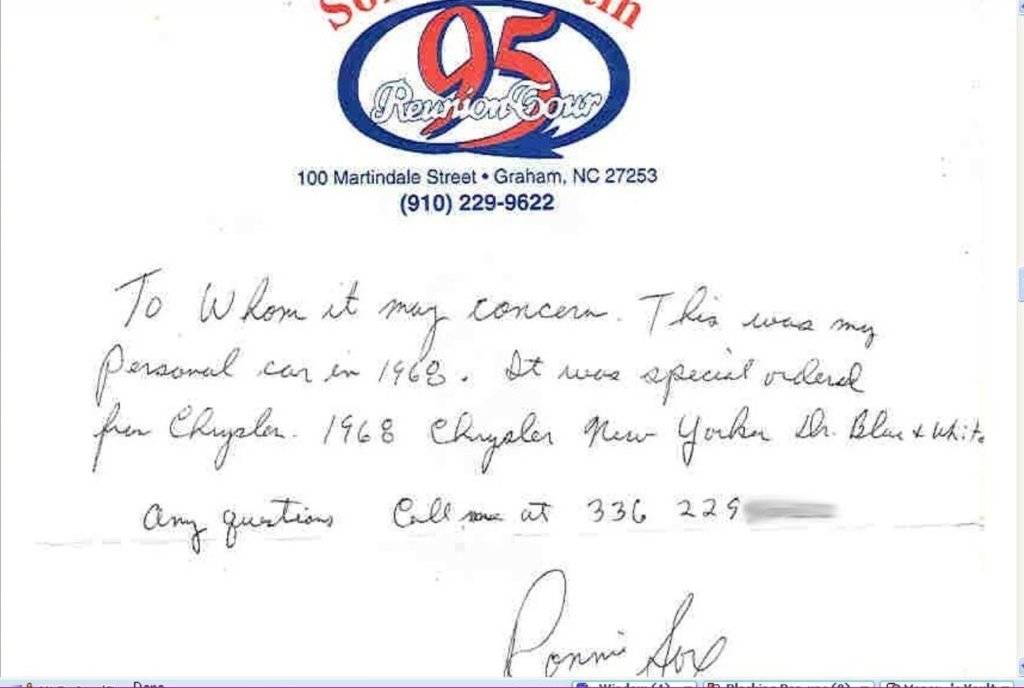 95
Reunion Tour
100 Martindale Street • Graham, NC 27253
(910) 229-9622
To Whom it may concern. This was my
personal car in 1968. It was special ordered
from Chrysler. 1968 Chrysler New Yorker Dr. Blue & White
any questions Call me at 336 229
Ronnie Sox